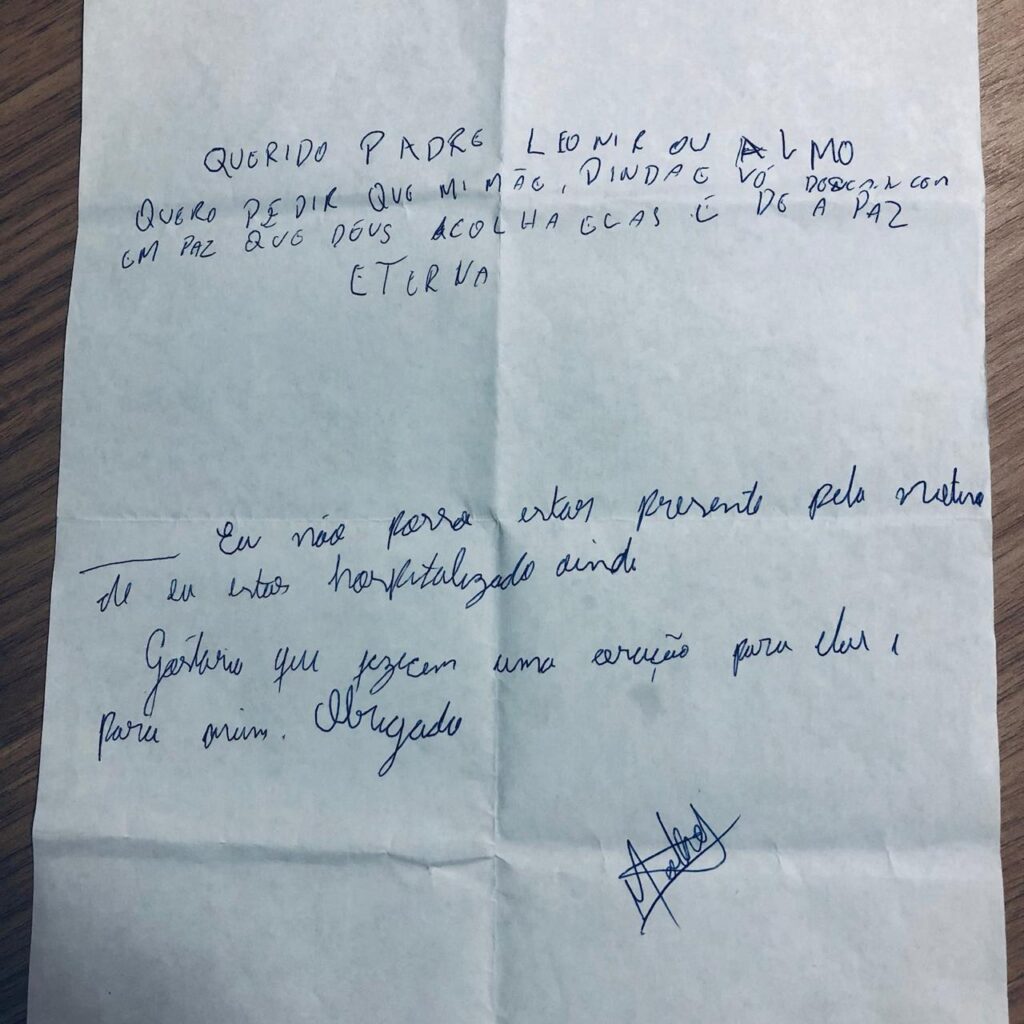 QUERIDO PADRE LEONIR OU ALMO
QUERO PEDIR QUE MI MÃE, DINDA E VÓ DESCANCEM
EM PAZ QUE DEUS ACOLHA ELAS E DE A PAZ
ETERNA
Eu não posso estar presente pelo
de eu estar hospitalizado ainda
Gostaria que fezecem uma oração para elas e
para mim. Obrigado